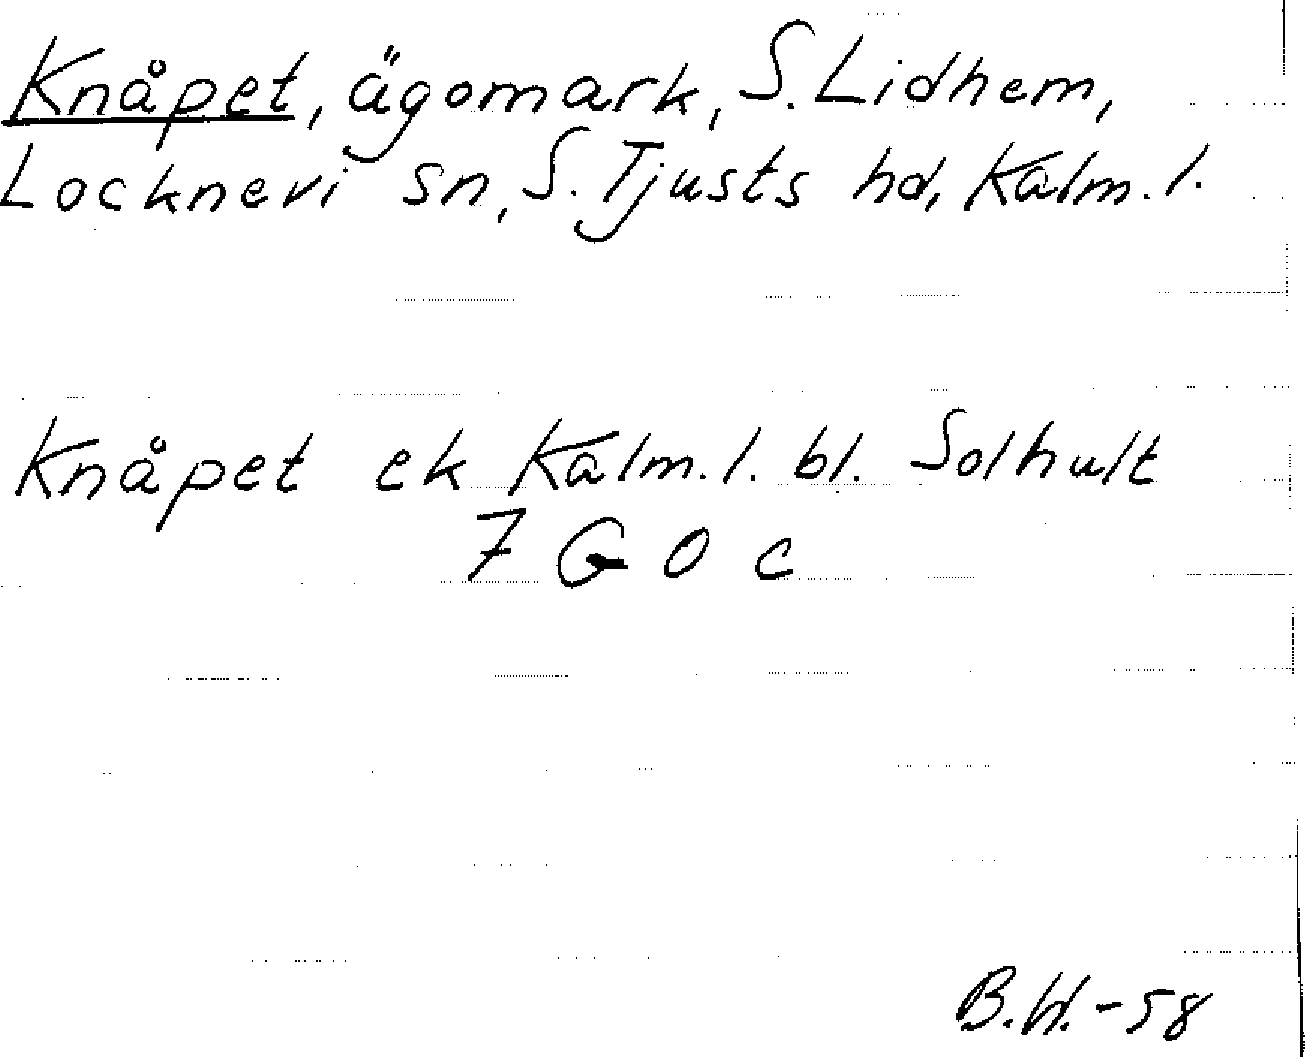 Knåpet, ägomark, S. Lidhem,
Locknevi sn, S. Tjusts hd, Kalm. l.
Knåpet ek Kalm. l. bl. Solhult
7 G 0 c
B.H. - 58